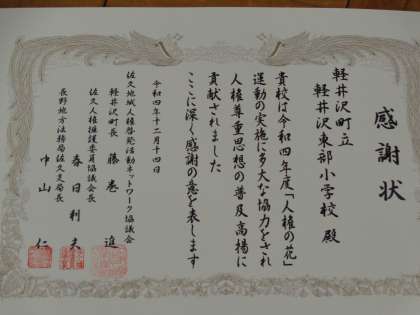 感謝状
軽井沢町立
軽井沢東部小学校 殿
貴校は令和四年度「人権の花」
運動の実施に多大な協力をされ
人権尊重思想の普及高揚に
貢献されました
ここに深く感謝の意を表します
令和四年十二月十四日
佐久地域人権啓発活動ネットワーク協議会
軽井沢町長 藤巻 進
佐久人権擁護委員協議会長
春日利夫
長野地方法務局佐久支局長
中山 仁